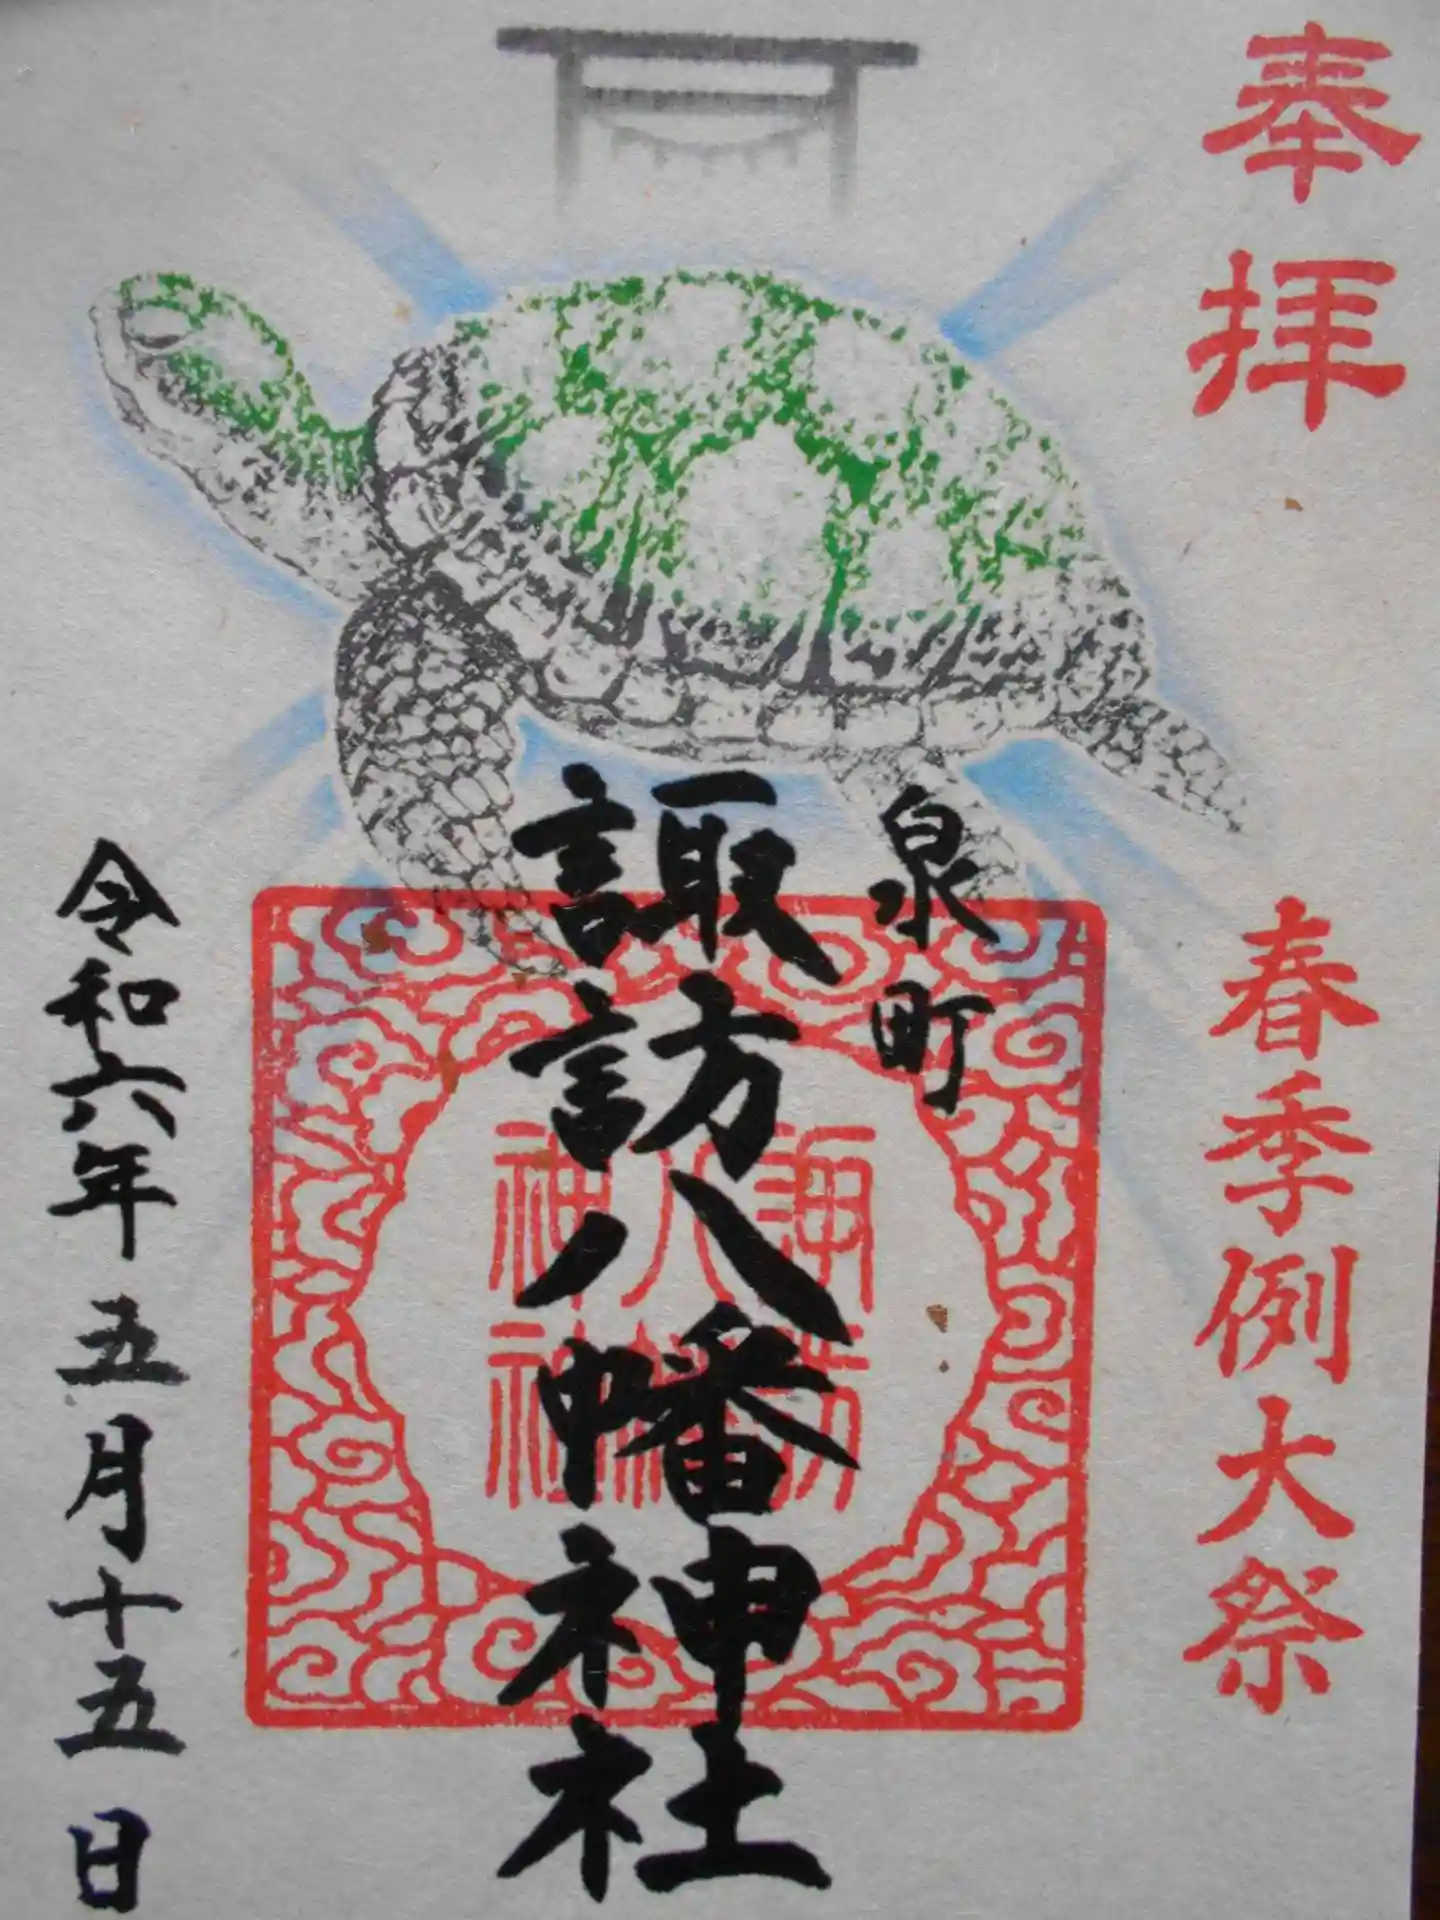 奉拝
春季例大祭
泉町
諏訪八幡神社
令和六年五月十五日